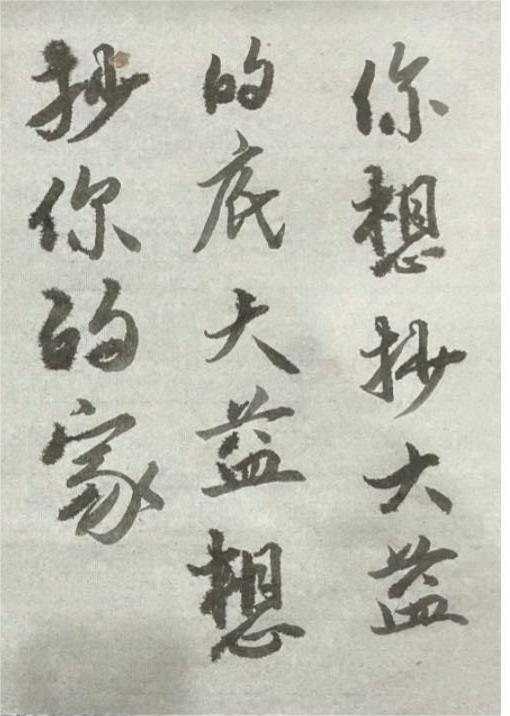 你想抄大益
的底大益想
抄你的家